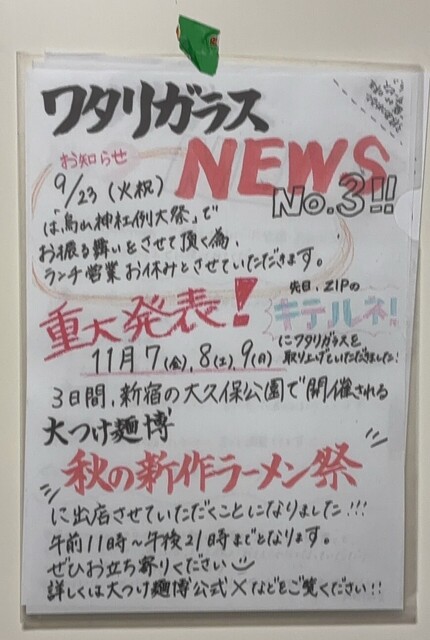 ワタリガラス
NEWS
No.3!!
お知らせ
9/23(火祝)
は「烏山神社例大祭」で
お振る舞いをさせて頂く為、
ランチ営業お休みとさせていただきます。
重大発表!
先日、ZIPの
キテルネ!
にワタリガラスを
取り上げていただきました!
11月7(金),8(土),9(日)
3日間、新宿の大久保公園で開催される
大つけ麺博
秋の新作ラーメン祭
に出店させていただくことになりました!!!
午前11時〜午後21時までとなります。
ぜひお立ち寄りください
詳しくは大つけ麺博公式Xなどをご覧ください!!